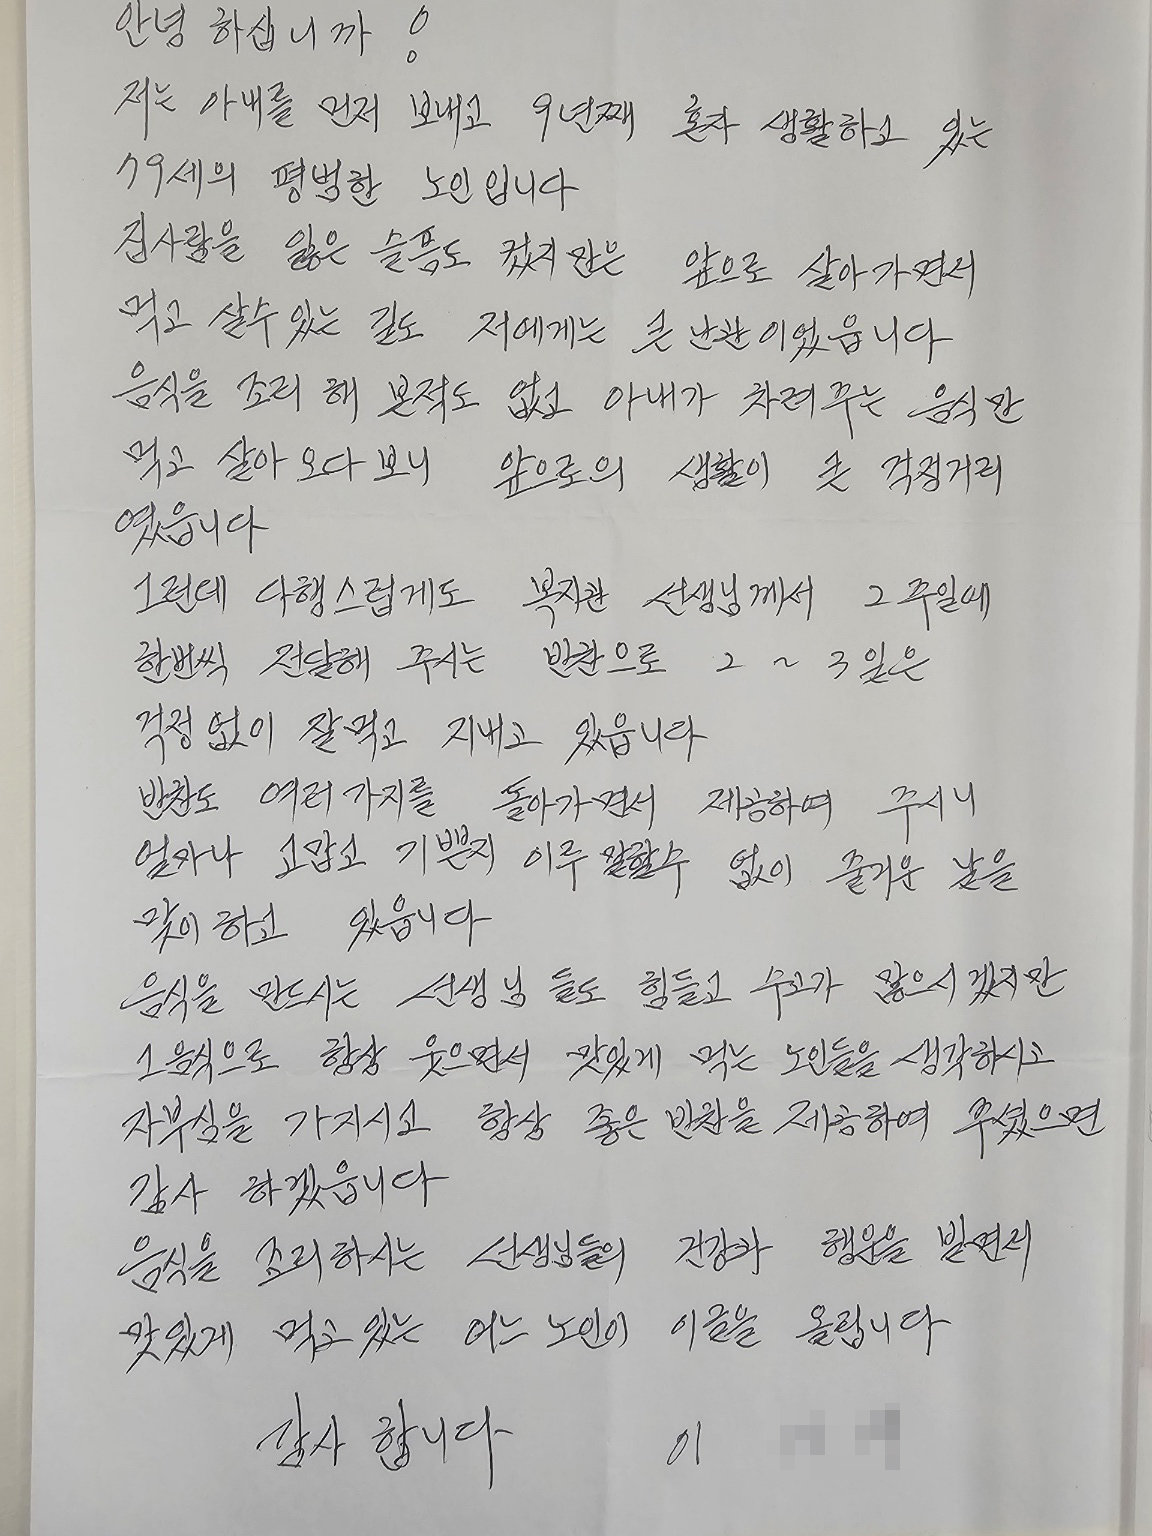 안녕 하십니까 !
저는 아내를 먼저 보내고 9년째 혼자 생활하고 있는
79세의 평범한 노인입니다
집사람을 잃은 슬픔도 컸지만은 앞으로 살아가면서
먹고 살수있는 길도 저에게는 큰 난관이었읍니다
음식을 조리 해 본적도 없고 아내가 차려주는 음식만
먹고 살아 오다보니 앞으로의 생활이 큰 걱정거리
였읍니다
그런데 다행스럽게도 복지관 선생님께서 2주일에
한번씩 전달해 주시는 반찬으로 2 ~ 3일은
걱정없이 잘먹고 지내고 있읍니다
반찬도 여러가지를 돌아가면서 제공하여 주시니
얼마나 고맙고 기쁜지 이루 말할수 없이 즐거운 날을
맞이하고 있읍니다
음식을 만드시는 선생님 들도 힘들고 수고가 많으시겠지만
그음식으로 항상 웃으면서 맛있게 먹는 노인들을 생각하시고
자부심을 가지시고 항상 좋은 반찬을 제공하여 주셨으면
감사 하겠읍니다
음식을 조리하시는 선생님들의 건강과 행운을 빌면서
맛있게 먹고있는 어느 노인이 이글을 올립니다
감사 합니다 이